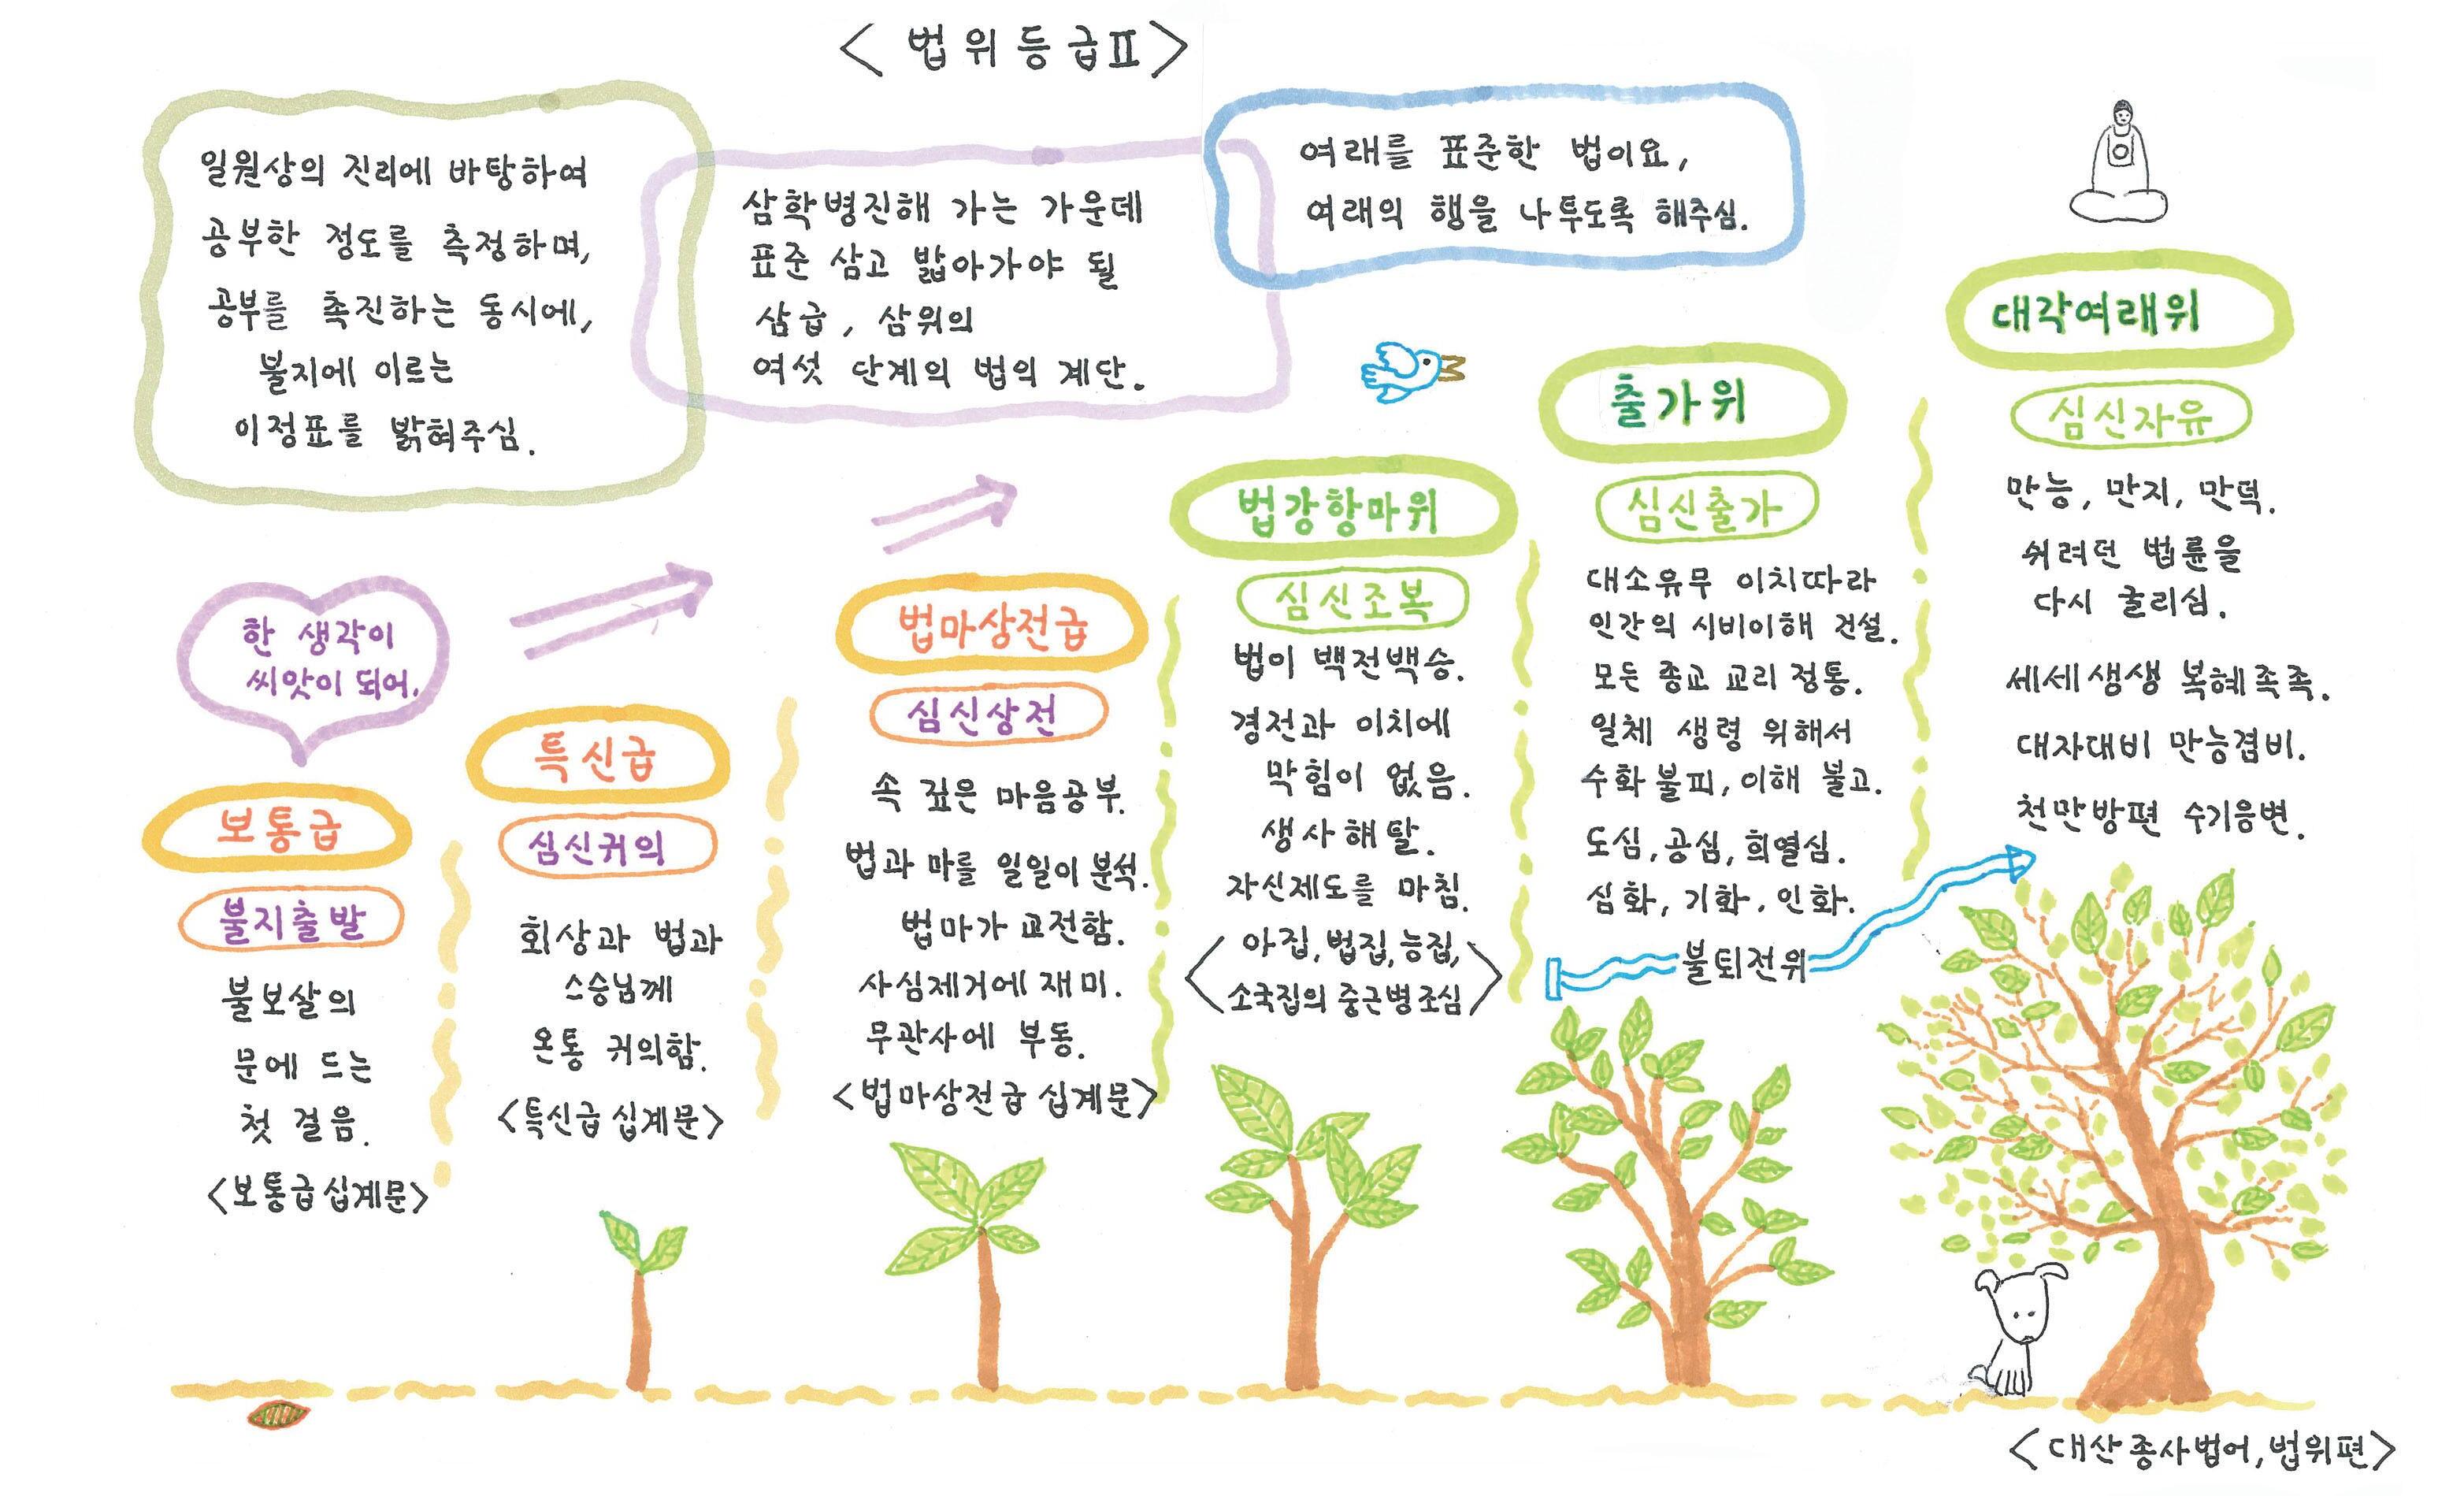 <법위등급Ⅱ>
일원상의 진리에 바탕하여
공부한 정도를 측정하며,
공부를 촉진하는 동시에,
불지에 이르는
이정표를 밝혀주심.
삼학병진해 가는 가운데
표준 삼고 밟아가야 될
삼급, 삼위의
여섯 단계의 법의 계단.
여래를 표준한 법이요,
여래의 행을 나투도록 해주심.
한 생각이
씨앗이 되어.
보통급
불지출발
불보살의
문에 드는
첫 걸음.
<보통급 십계문>
특신급
심신귀의
회상과 법과
스승님께
온통 귀의함.
<특신급 십계문>
법마상전급
심신상전
속 깊은 마음공부.
법과 마를 일일이 분석.
법마가 교전함.
사심제거에 재미.
무관사에 부동.
<법마상전급 십계문>
법강항마위
심신조복
법이 백전백승.
경전과 이치에
막힘이 없음.
생사해탈.
자신제도를 마침.
<아집, 법집, 능집,
소국집의 중근병 조심>
출가위
심신출가
대소유무 이치따라
인간의 시비이해 건설.
모든 종교 교리 정통.
일체 생령 위해서
수화불피, 이해 불고.
도심, 공심, 희열심.
심화, 기화, 인화.
불퇴전위
대각여래위
심신자유
만능, 만지, 만덕.
쉬려던 법륜을
다시 굴리심.
세세생생 복혜족족.
대자대비 만능겸비.
천만방편 수기응변.
<대산종사법어, 법위편>